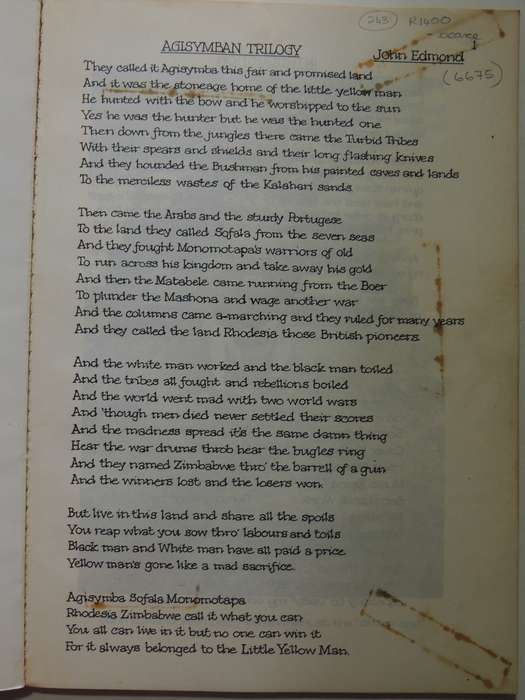 243 R1400
scarce
1
AGISYMBAN TRILOGY
John Edmond
(6675)
They called it Agisymba this fair and promised land
And it was the stoneage home of the little yellow man
He hunted with the bow and he worshipped to the sun
Yes he was the hunter but he was the hunted one
Then down from the jungles there came the Turbid Tribes
With their spears and shields and their long flashing knives
And they hounded the Bushman from his painted caves and lands
To the merciless wastes of the Kalahari sands.
Then came the Arabs and the sturdy Portugese
To the land they called Sofala from the seven seas
And they fought Monomotapa's warriors of old
To run across his kingdom and take away his gold
And then the Matabele came running from the Boer
To plunder the Mashona and wage another war
And the columns came a-marching and they ruled for many years
And they called the land Rhodesia those British pioneers.
And the white man worked and the black man toiled
And the tribes all fought and rebellions boiled
And the world went mad with two world wars
And 'though men died never settled their scores
And the madness spread it's the same damn thing
Hear the war drums throb hear the bugles ring
And they named Zimbabwe thro' the barrell of a gun
And the winners lost and the losers won.
But live in this land and share all the spoils
You reap what you sow thro' labours and toils
Black man and White man have all paid a price
Yellow man's gone like a mad sacrifice.
Agisymba Sofala Monomotapa
Rhodesia Zimbabwe call it what you can
You all can live in it but no one can win it
For it always belonged to the Little Yellow Man.